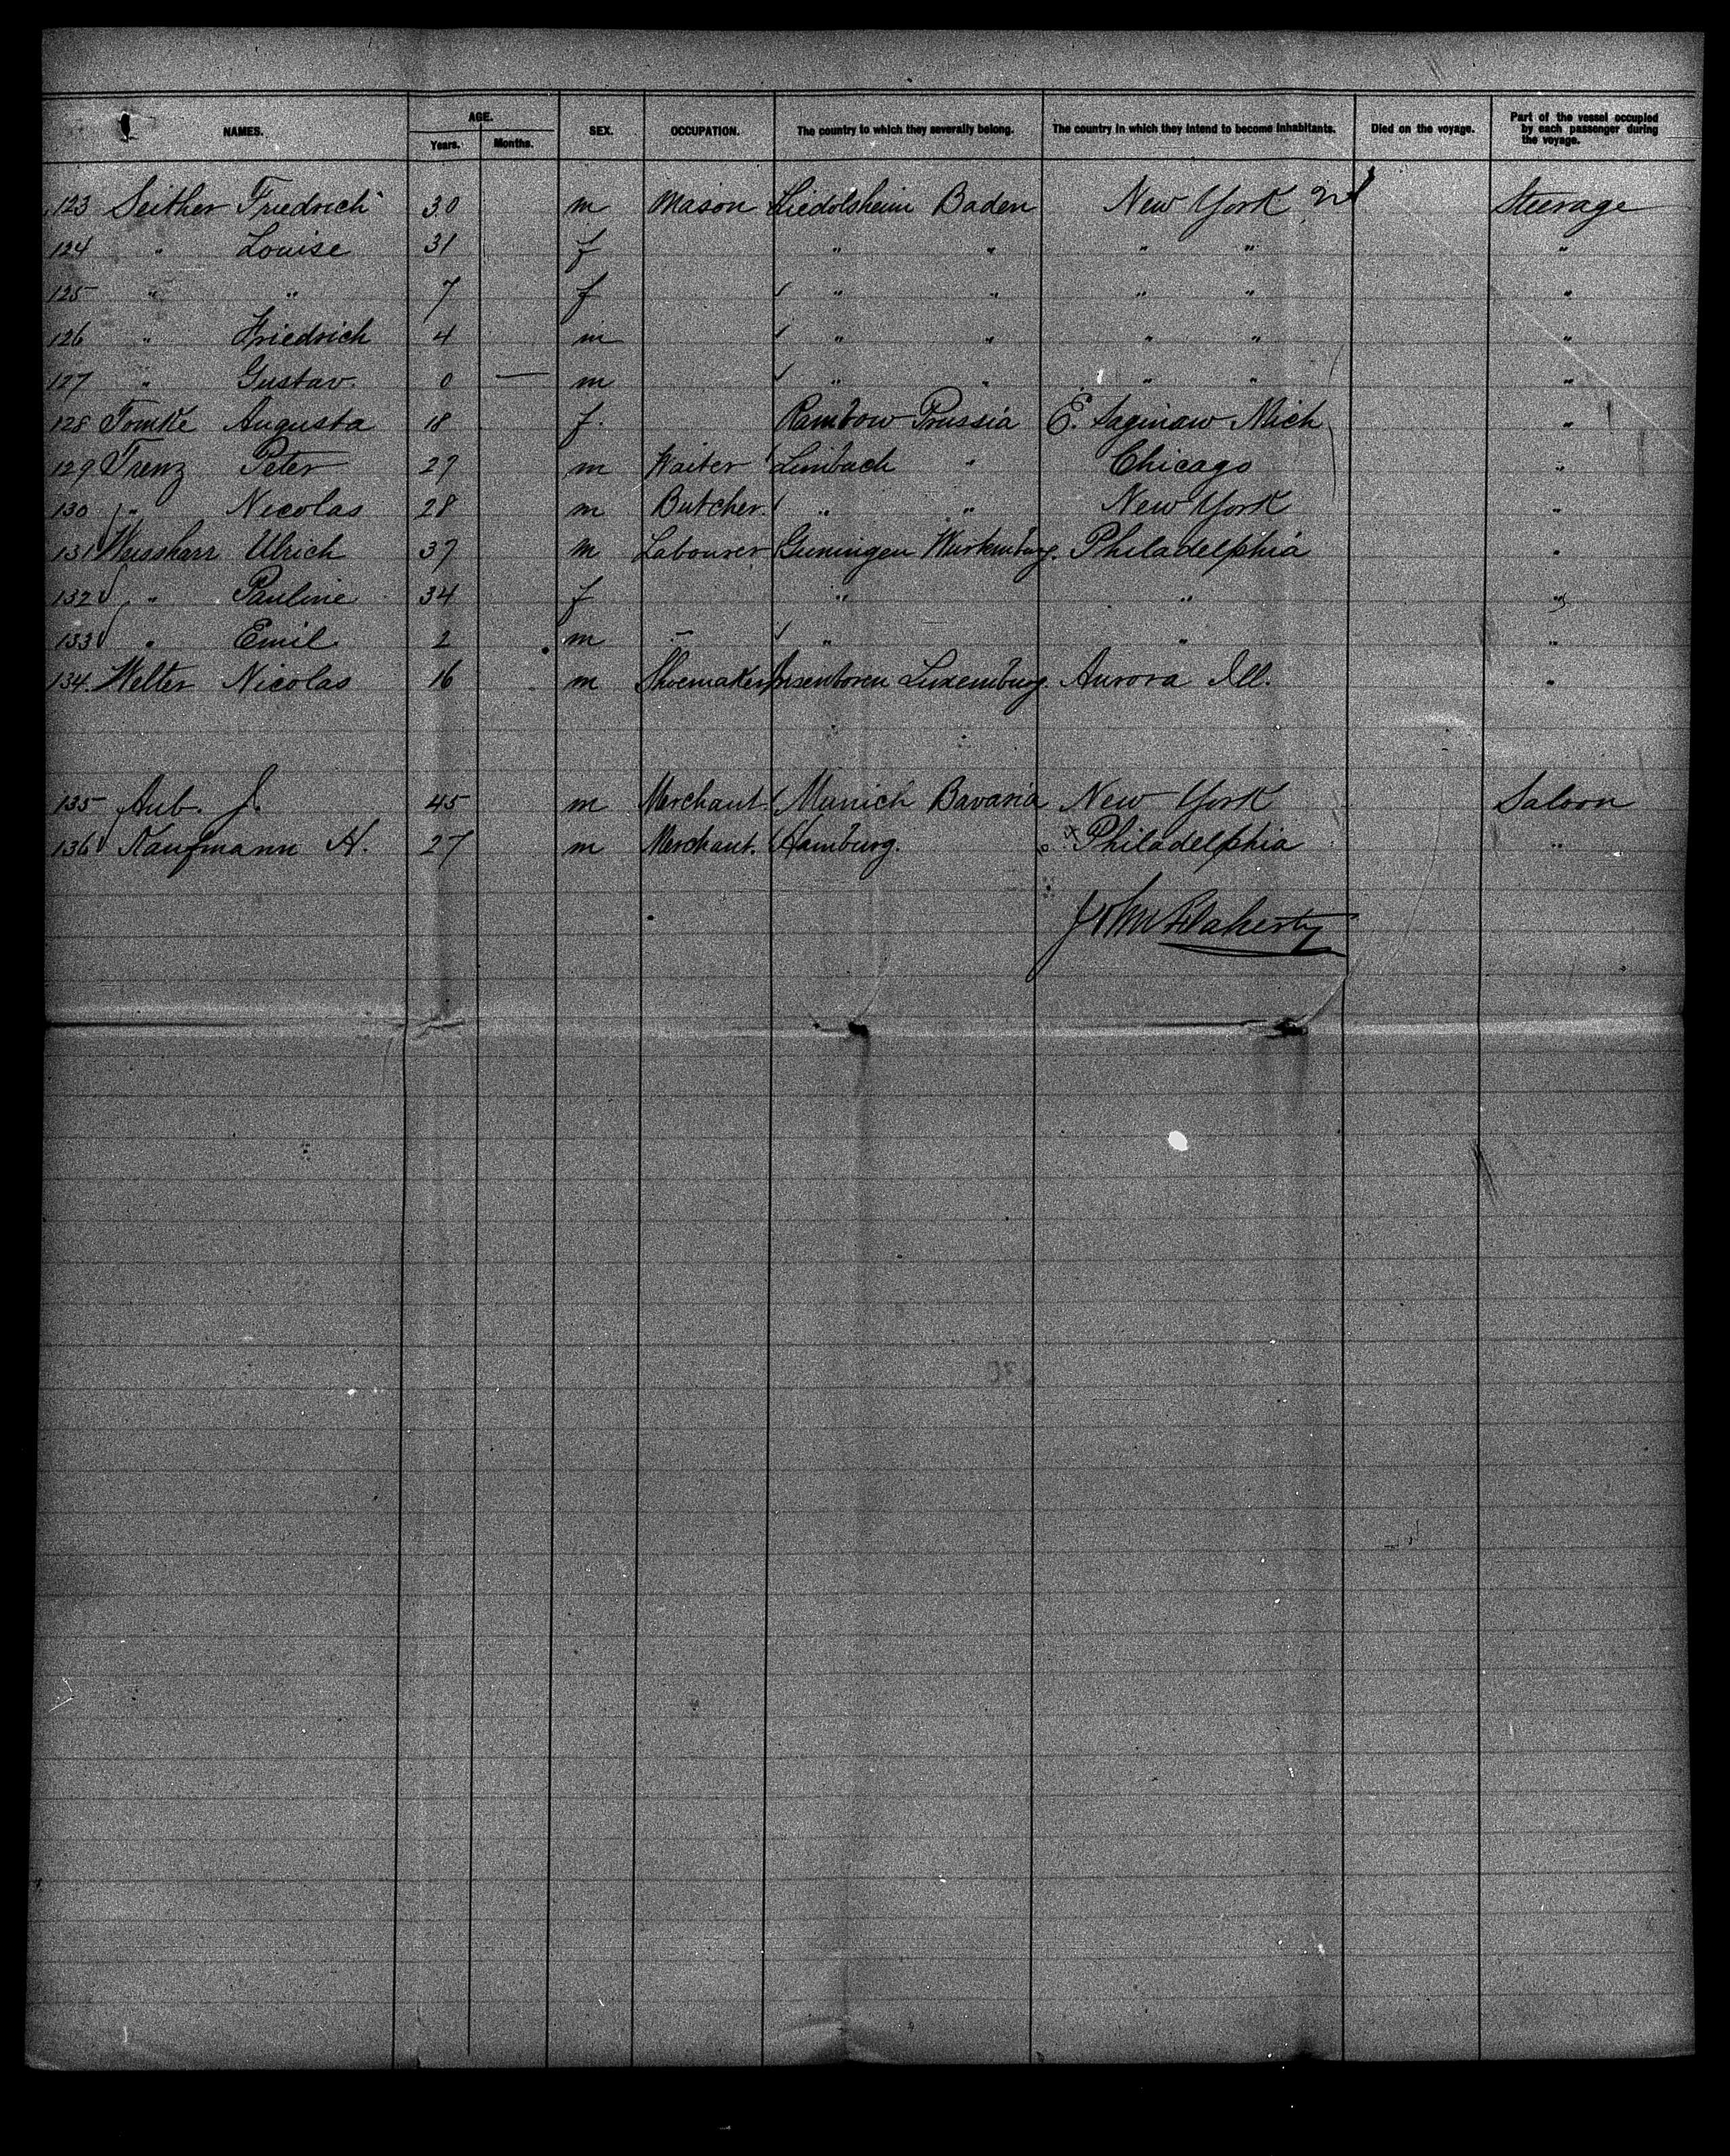 NAMES. AGE. Years. Months. SEX. OCCUPATION. The country to which they severally belong. The country in which they intend to become inhabitants. Died on the voyage. Part of the vessel occupied by each passenger during the voyage.
123 Seither Friedrich 30 m Mason Liedolsheim Baden New York Steerage
124 " Louise 31 f " " " " "
125 " " 7 f " " " " "
126 " Friedrich 4 m " " " " "
127 " Gustav. 0 — m " " " " "
128 Tomke Augusta 18 f. Rambow Prussia E. Saginaw Mich "
129 Trenz Peter 29 m Waiter Limbach " Chicago "
130 " Nicolas 28 m Butcher. " " New York "
131 Weissharr Ulrich 37 m Labourer Guningen Wurtemburg. Philadelphia "
132 " Pauline 34 f " " "
133 " Emil 2 m " " "
134. Welter Nicolas 16 m Shoemaker Luxemburg. Aurora Ill. "
135 Aub. J. 45 m Merchant. Munich Bavaria New York Saloon
136 Kaufmann H. 27 m Merchant. Hamburg. Philadelphia "
Flaherty